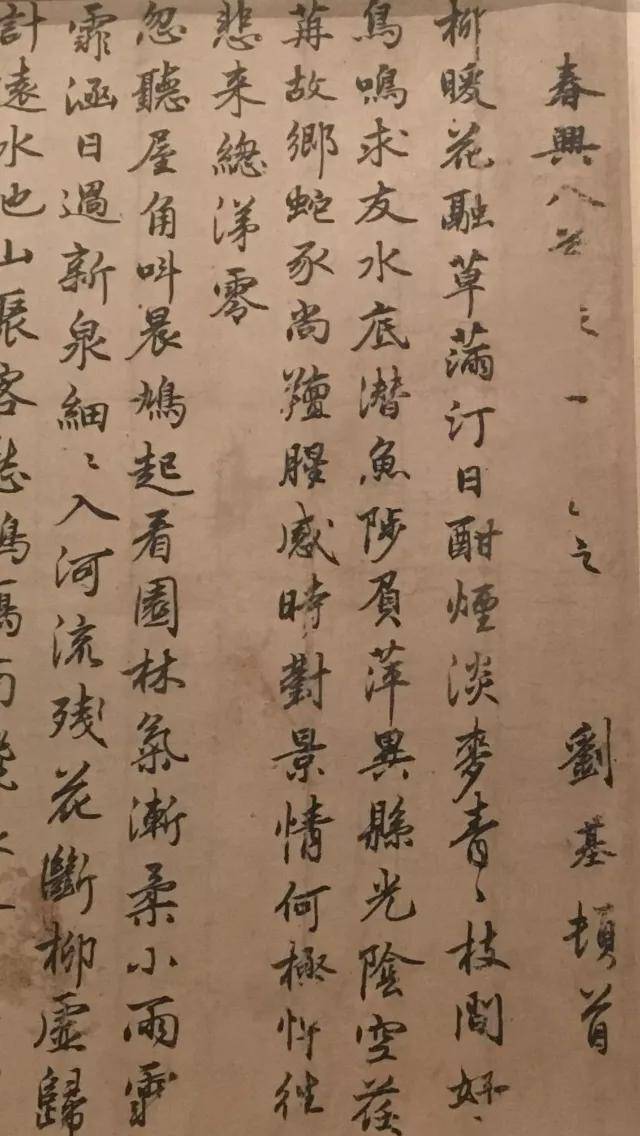 春興八首 之一 劉基頓首
柳暖花融草滿汀日酣煙淡麥青〻枝間好
鳥鳴求友水底潛魚陟負萍異縣光陰空荏
苒故鄉蛇豕尚羶腥感時對景情何極忤往
悲来總涕零
忽聽屋角叫晨鳩起看園林氣漸柔小雨
霏涵日過新泉細〻入河流残花斷柳虛歸
計遠水也山客愁